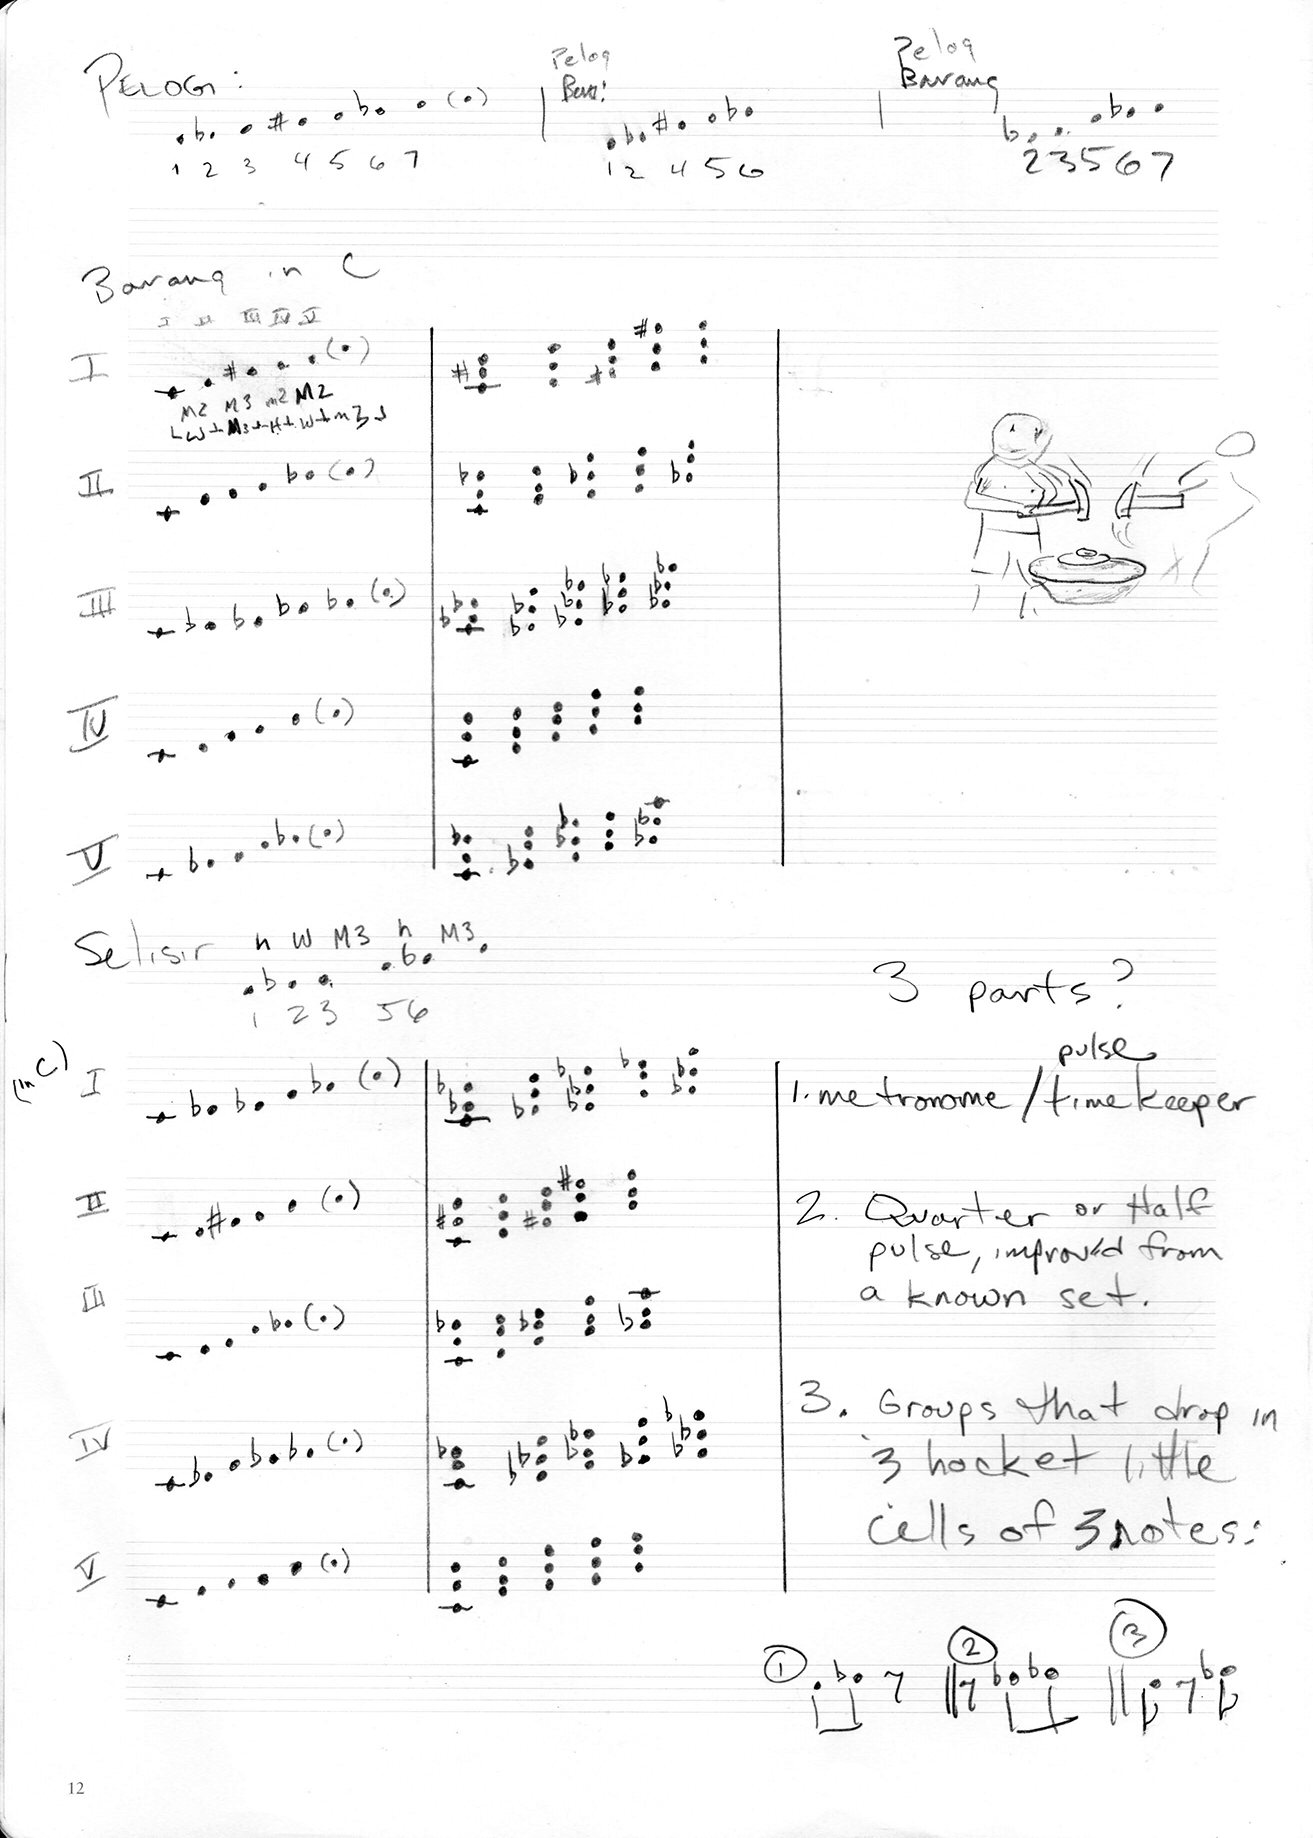 PELOG:
1 2 3 4 5 6 7
Pelog
1 2 4 5 6
Pelog
Barang
2 3 5 6 7
Barang in C
I II III IV V
I
M2 M3 m2 M2
W + M3 + H + W + m3
II
III
IV
V
Selisir
h W M3 h M3
1 2 3 5 6
(in C)
I
II
III
IV
V
3 parts?
pulse
1. metronome / timekeeper
2. Quarter or Half
pulse, improv'd from
a known set.
3. Groups that drop in
3 hocket little
cells of 3 notes:
1 2 3
12